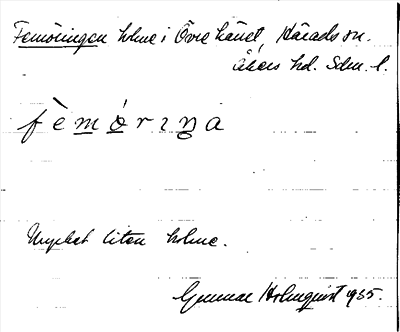 Femöringen holme i Övre hånet, Härads sn.
Åkers hd. Sdm. l.
fèmö́rɪŋa
Mycket liten holme.
Gunnar Holmquist 1935.